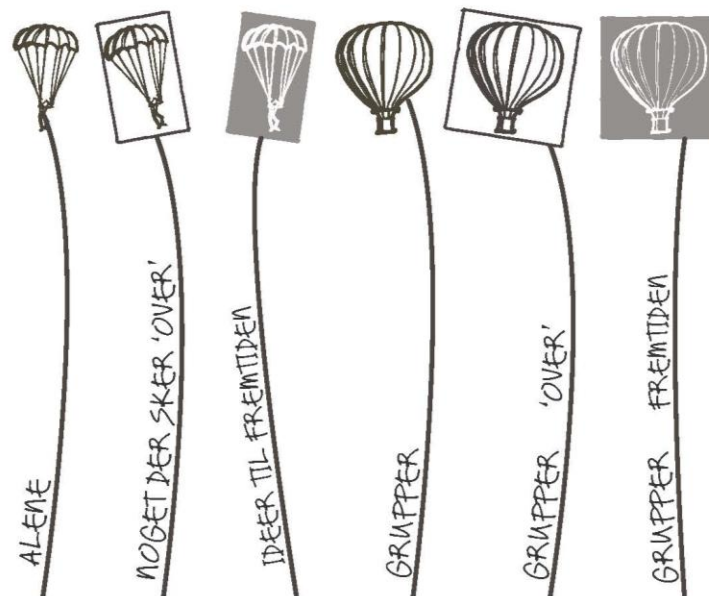 ALENE
NOGET DER SKER 'OVER'
IDEER TIL FREMTIDEN
GRUPPER
GRUPPER 'OVER'
GRUPPER FREMTIDEN